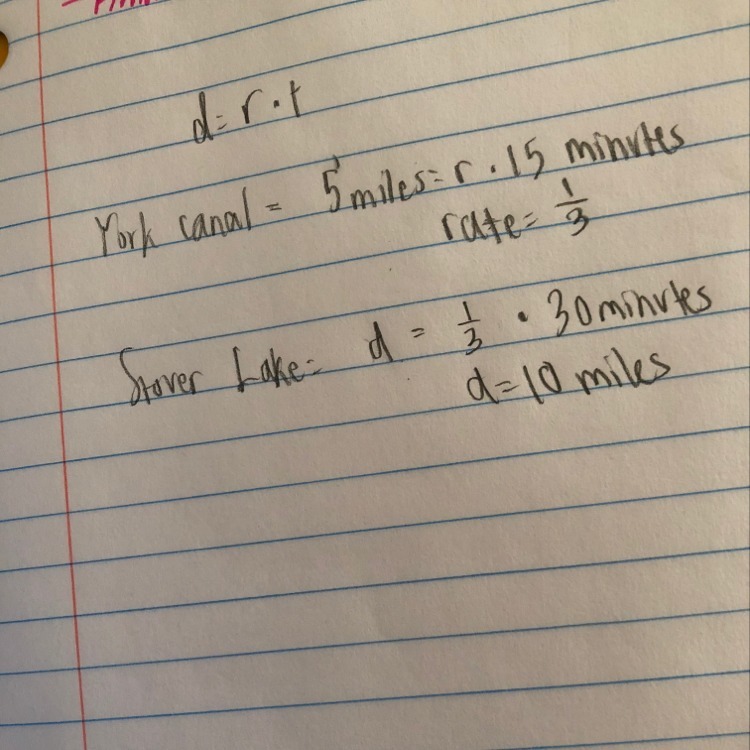 d = r · t
York canal = 5 miles = r · 15 minutes
rate = 1/3
Stover Lake = d = 1/3 · 30 minutes
d = 10 miles